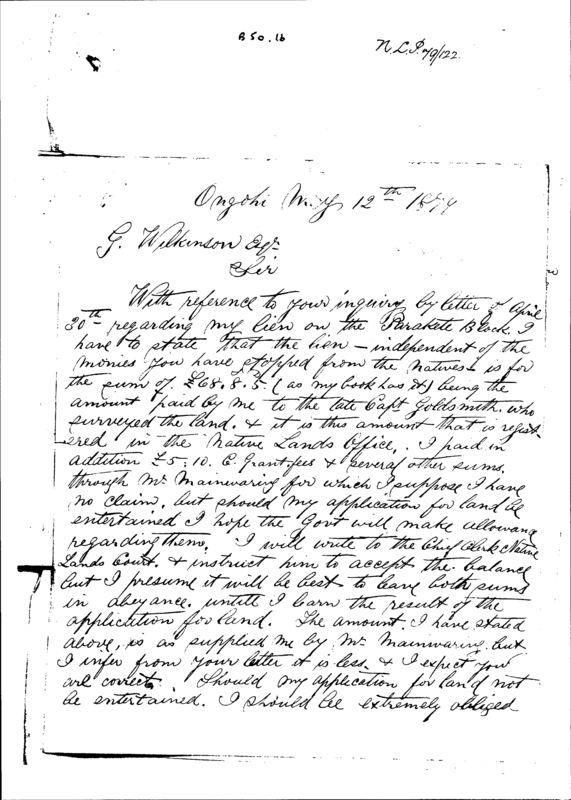 B 50.16
N.L.P. 79/122
Ongohi May 12th 1879
G. Wilkinson Esqr
Sir
With reference to your inquiry by letter of April
30th regarding my lien on the Parakete Block. I
have to state that the lien - independent of the
monies you have stopped from the natives - is for
the sum of £68.8.5. (as my book has it) being the
amount paid by me to the late Capt Goldsmith. who
surveyed the land. & it is this amount that is regist-
ered in the Native Lands Office. I paid in
addition £5:10. C. Grant fees & several other sums.
through Mr Mainwaring for which I suppose I have
no claim. but should my application for land be
entertained I hope the Govt will make allowance
regarding them. I will write to the Chief Clerk Native
Lands Court. & instruct him to accept the balance
but I presume it will be best to leave both sums
in abeyance. untill I learn the result of the
application for land. The amount I have stated
above, is as supplied me by Mr Mainwaring. but
I infer from your letter it is less. & I expect you
are correct. Should my application for land not
be entertained. I should be extremely obliged